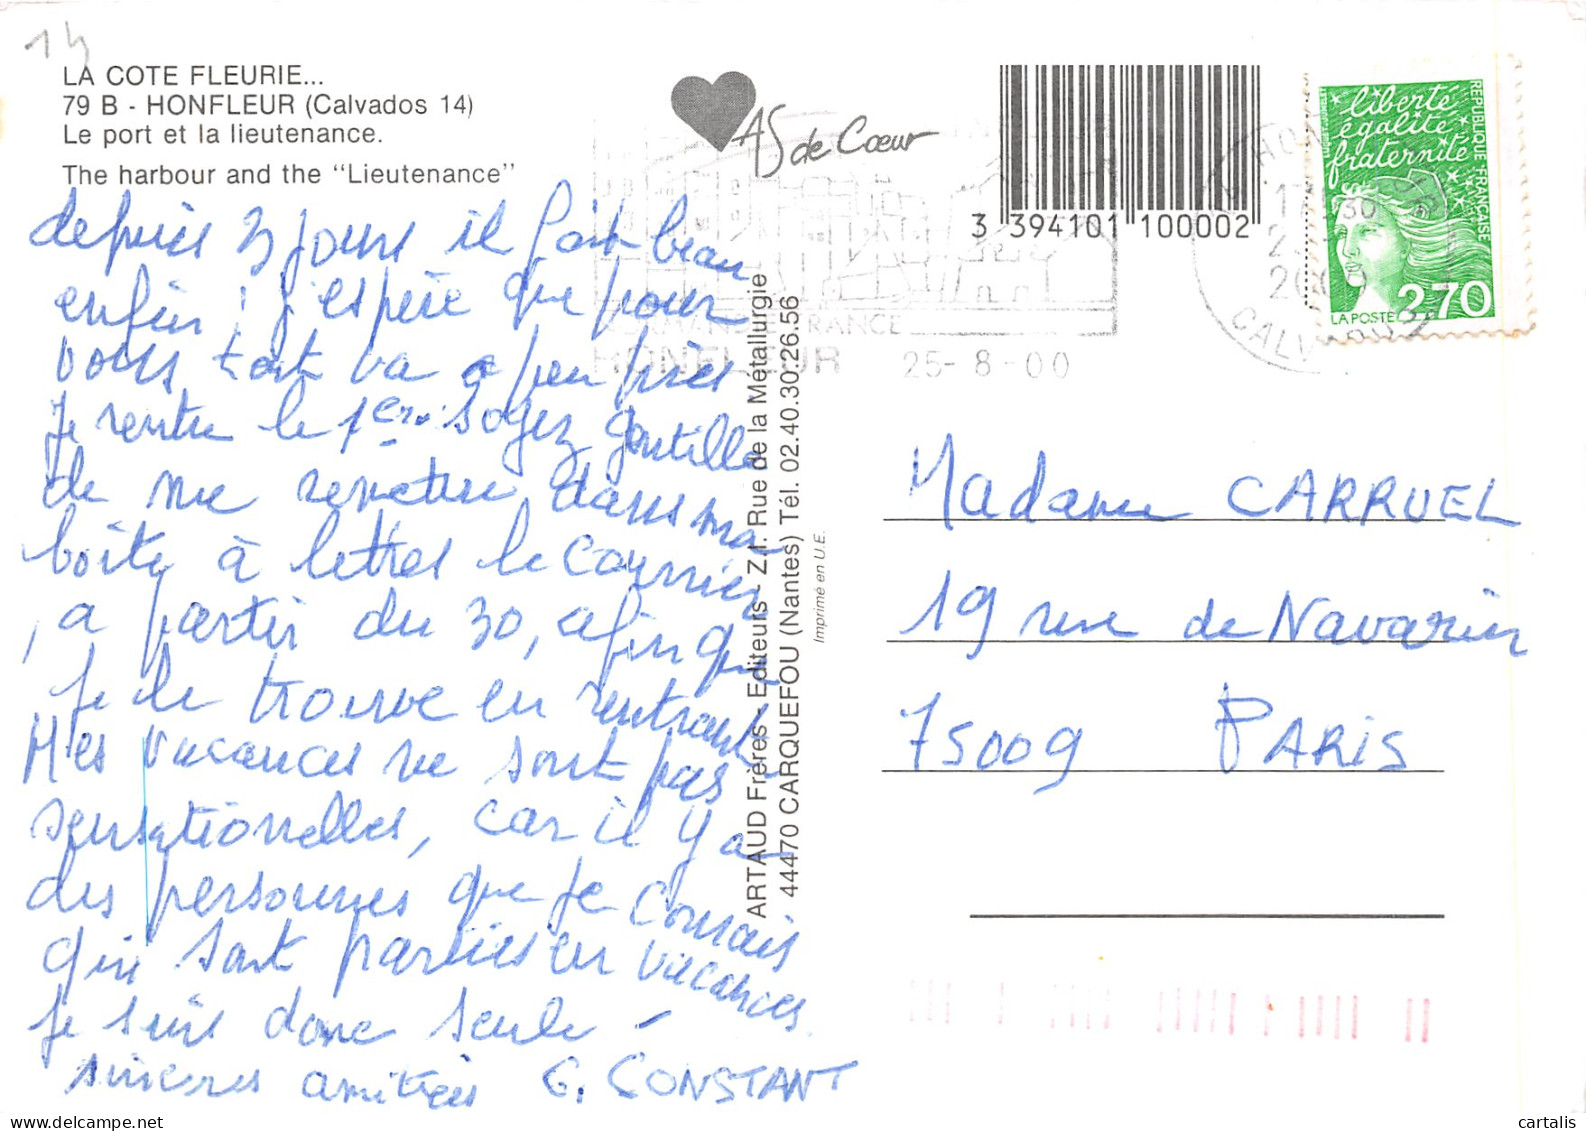 14
LA COTE FLEURIE...
79 B - HONFLEUR (Calvados 14)
Le port et la lieutenance.
The harbour and the "Lieutenance"
AS de Cœur
3 394101 100002
liberté
égalité
fraternité
REPUBLIQUE FRANÇAISE
LA POSTE 2,70
17 30
2000
CALVADOS
NORMANDIE FRANCE
HONFLEUR 25-8-00
depuis 3 jours il fait beau
enfin ! j'espère que pour
vous tout va a peu près
Je rentre le 1er. Soyez gentille
de me remettre dans ma
boîte à lettres le courrier
, a partir du 30, afin que
je le trouve en rentrant
Mes vacances ne sont pas
sensationnelles, car il y a
des personnes que je connais
qui sont parties en vacances.
Je suis donc seule -
sincères amitiés G. CONSTANT
ARTAUD Frères - Editeurs - Z.I. Rue de la Métallurgie
44470 CARQUEFOU (Nantes) Tél. 02.40.30.26.56
Imprimé en U.E.
Madame CARRUEL
19 rue de Navarin
75009 PARIS
cartalis